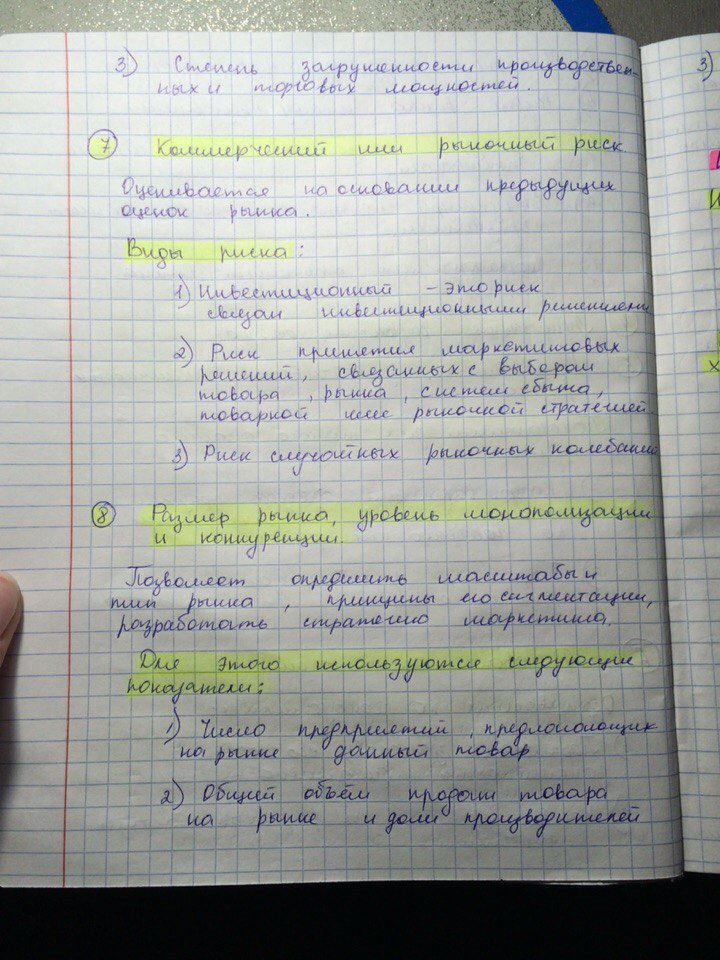 3) Степень загруженности производствен-
ных и торговых мощностей.
7 Коммерческий или рыночный риск
Оценивается на основании предыдущих
оценок рынка.
Виды риска:
1) Инвестиционный - это риск
связан инвестиционными решениями
2) Риск принятия маркетинговых
решений, связанных с выбором
товара, рынка, систем сбыта,
товарной или рыночной стратегией
3) Риск случайных рыночных колебаний
8 Размер рынка, уровень монополизации
и конкуренции.
Позволяет определить масштабы и
тип рынка, принципы его сигментации,
разработать стратегию маркетинга.
Для этого используются следующие
показатели:
1) Число предприятий, предлагающих
на рынке данный товар
2) Общий объём продаж товара
на рынке и доли производителей
3)